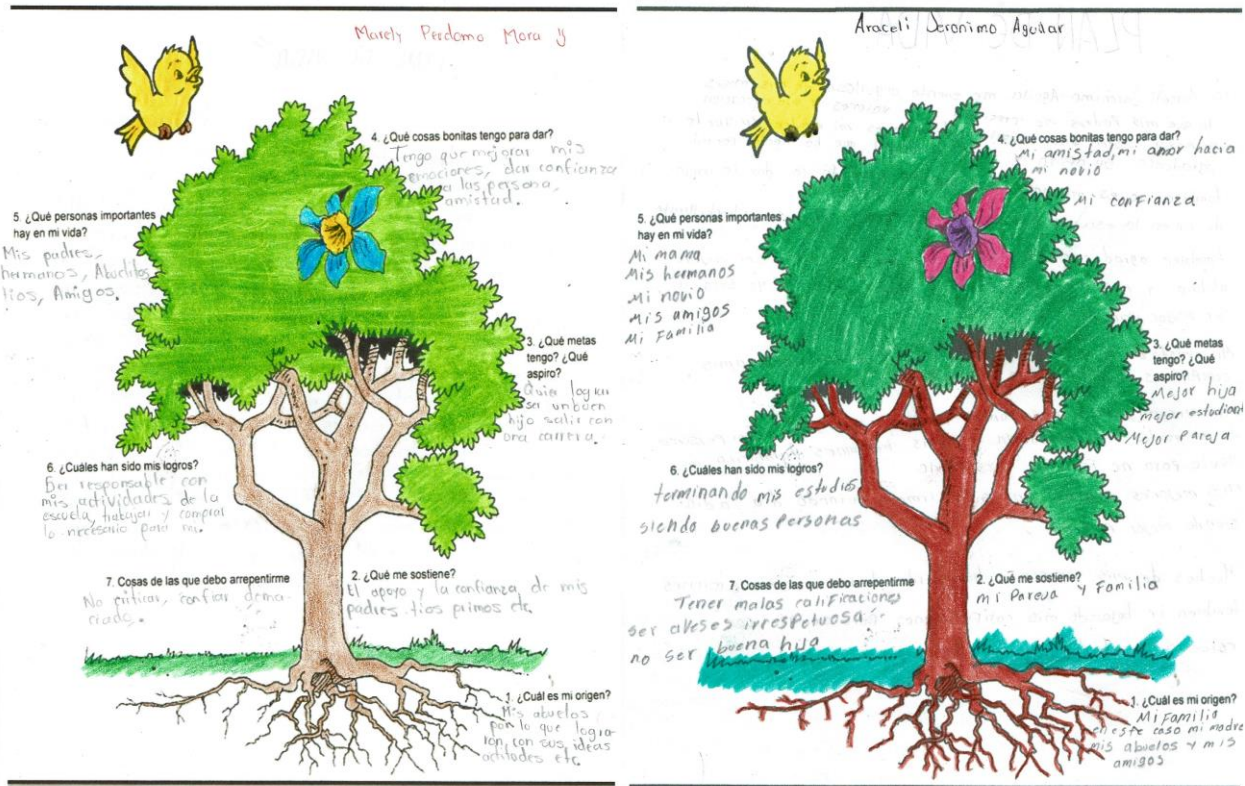 Marely Perdomo Mora
4. ¿Qué cosas bonitas tengo para dar?
Tengo que mejorar mis
emociones, dar confianza
a las persona,
amistad.
5. ¿Qué personas importantes
hay en mi vida?
Mis padres,
hermanos, Abuelitos
tios, Amigos.
3. ¿Qué metas
tengo? ¿Qué
aspiro?
Quier lograr
ser un buen
hijo salir con
una carrera.
6. ¿Cuáles han sido mis logros?
Ser responsable con
mis actividades de la
escuela, trabajar y comprar
lo necesario para mi.
7. Cosas de las que debo arrepentirme
No criticar, confiar dema-
ciado.
2. ¿Qué me sostiene?
El apoyo y la confianza de mis
padres tios primos etc.
1. ¿Cuál es mi origen?
Mis abuelos
por lo que logra-
ron, con sus ideas
actitudes etc.
Araceli Jeronimo Aguilar
4. ¿Qué cosas bonitas tengo para dar?
Mi amistad, mi amor hacia
mi novio
Mi confianza
5. ¿Qué personas importantes
hay en mi vida?
Mi mama
Mis hermanos
Mi novio
Mis amigos
Mi Familia
3. ¿Qué metas
tengo? ¿Qué
aspiro?
Mejor hija
mejor estudiant
Mejor Pareja
6. ¿Cuáles han sido mis logros?
terminando mis estudios
siendo buenas Personas
7. Cosas de las que debo arrepentirme
Tener malas calificaciones
ser aveses irrespetuosa
no ser buena hija
2. ¿Qué me sostiene?
mi Pareja y Familia
1. ¿Cuál es mi origen?
Mi Familia
en este caso mi madre
mis abuelos y mis
amigos